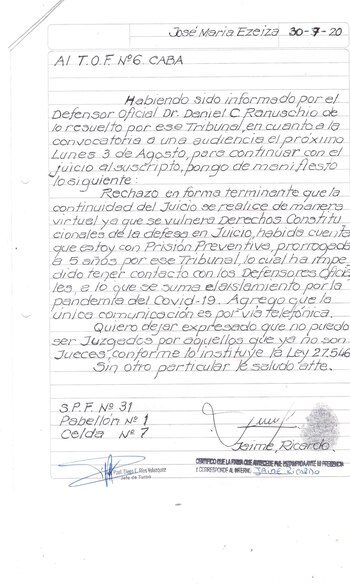 José Maria Ezeiza 30-7-20
Al T.O.F. Nº6. CABA
Habiendo sido informado por el
Defensor Oficial Dr. Daniel C. Ranuschio de
lo resuelto por ese Tribunal, en cuanto a la
convocatoria a una audiencia el próximo
Lunes 3 de Agosto, para continuar con el
juicio al suscripto, pongo de manifiesto
lo siguiente:
Rechazo en forma terminante que la
continuidad del Juicio se realice de manera
virtual ya que se vulnera Derechos Constitu
cionales de la defesa en Juicio, habida cuenta
que estoy con Prisión Preventiva, prorrogada
a 5 años por ese Tribunal, lo cual ha impe
dido tener contacto con los Defensores Oficia
les, a lo que se suma el aislamiento por la
pandemia del Covid-19. Agrego que la
única comunicación es por vía telefónica.
Quiero dejar expresado que no puedo
ser Juzgados por aquellos que ya no son
Jueces, conforme lo instituye la Ley 27.546
Sin otro particular le saludo atte.
S.P.F. Nº 31
Pabellón Nº 1
Celda Nº 7
Jaime, Ricardo.
CERTIFICO QUE LA FIRMA QUE ANTECEDE FUE ESTAMPADA ANTE MI PRESENCIA
Y CORRESPONDE AL INTERNO: JAIME RICARDO
Jefe de Turno